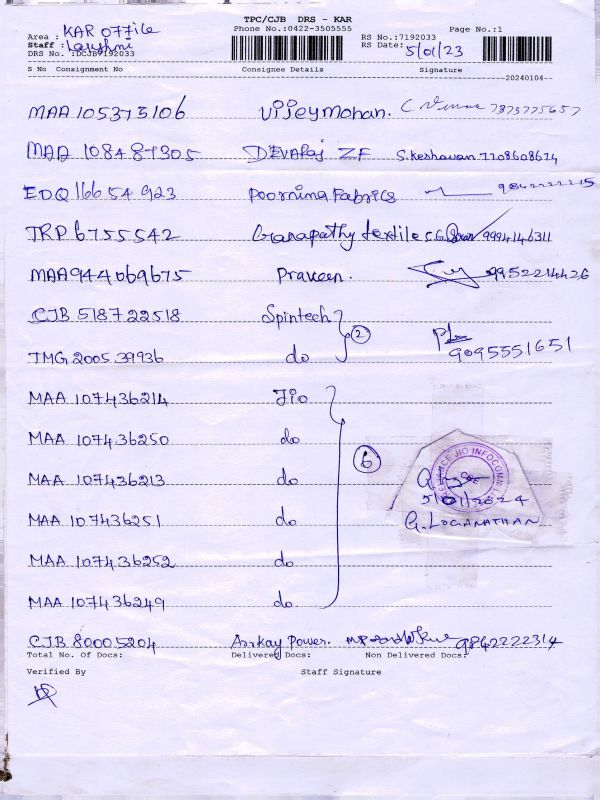 TPC/CJB DRS - KAR
Phone No.:0422-3505555
Page No.:1
Area : KAR Office
RS No.:7192033
Staff : Lakshmi
RS Date: 5/01/23
DRS No. :DCJB7192033
S No Consignment No Consignee Details Signature
20240104
MAA 105375106 Vijeymohan. 7873775657
MAA 108487305 DEVARAJ ZF S.Keshavan 7708608674
EDQ 16654923 Poornima Fabrics 9842222215
TRP 6755542 Ganapathy textile 9994146311
MAA 944069675 Praveen. 9952214426
CJB 518722518 Spintech
TMG 200539936 do 2 9095551651
MAA 107436214 Jio
MAA 107436250 do
MAA 107436213 do 6
RELIANCE JIO INFOCOMM
5/01/2024
MAA 107436251 do G. LOGANATHAN
MAA 107436252 do
MAA 107436249 do
CJB 80005204 Arkay Power. 9842222314
Total No. Of Docs: Delivered Docs: Non Delivered Docs:
Verified By Staff Signature